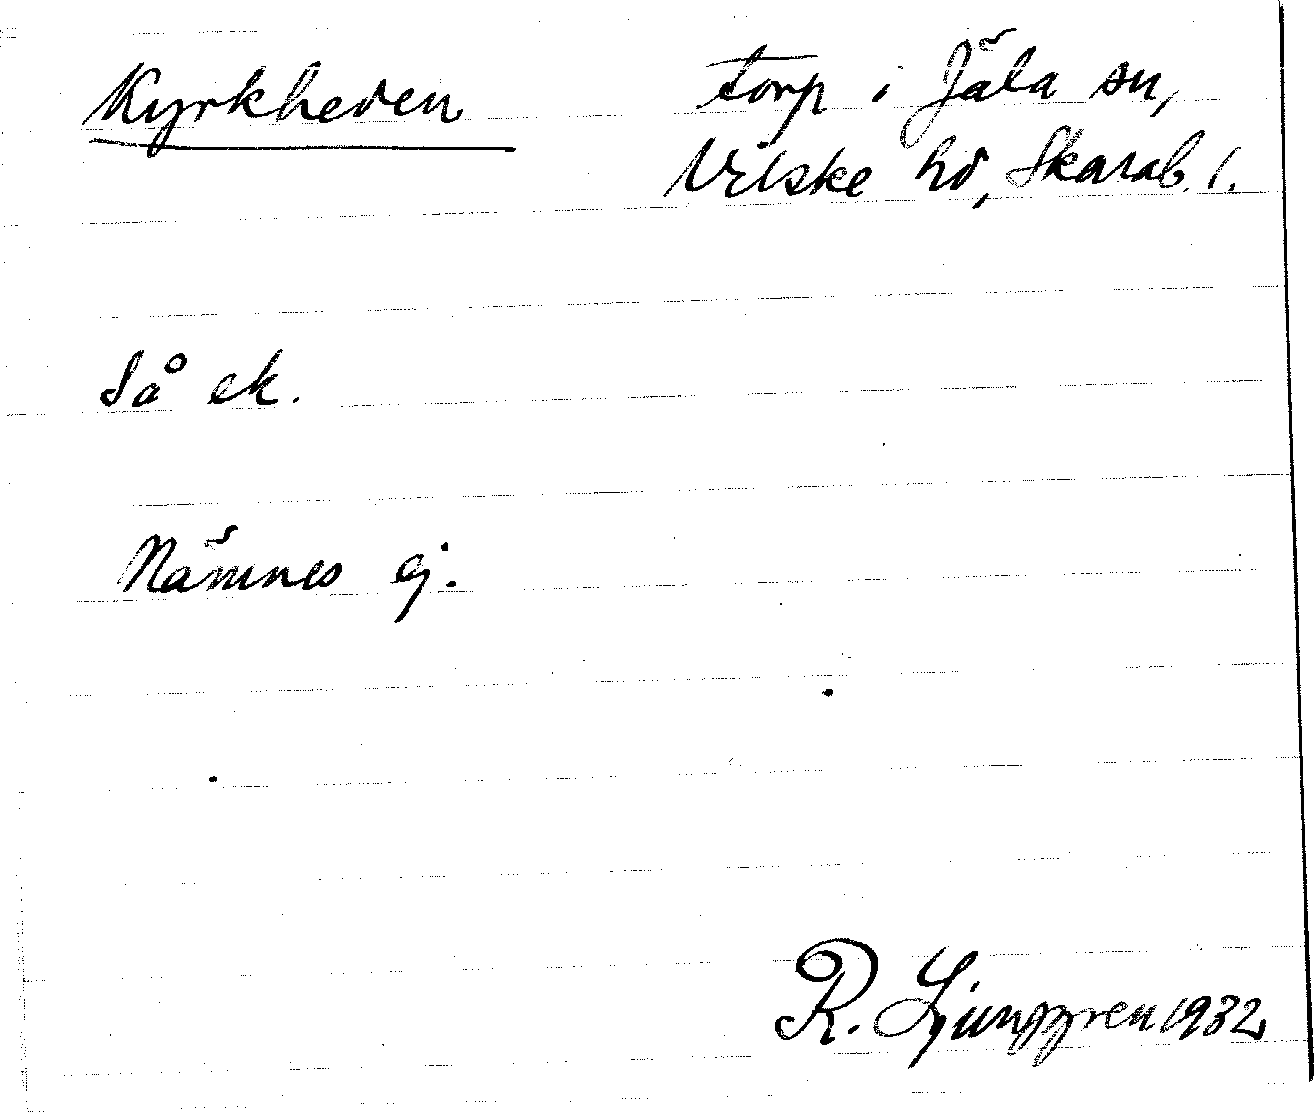 Kyrkheden torp i Jäla sn,
Vilske hd, Skarab. l.
Så ek.
Nämnes ej.
R. Ljunggren 1932